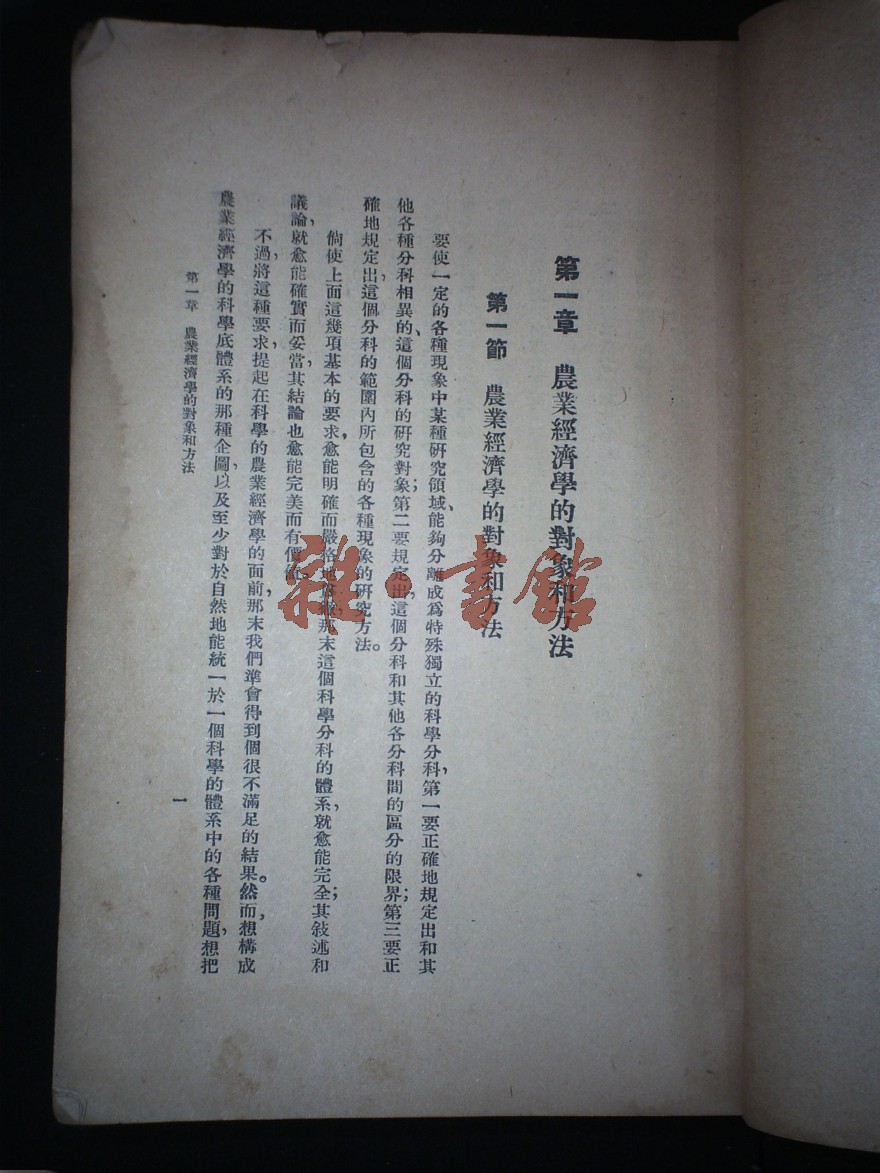 第一章　農業經濟學的對象和方法
第一節　農業經濟學的對象和方法
要使一定的各種現象中某種硏究領域、能夠分離成爲特殊獨立的科學分科，第一要正確地規定出和其
他各種分科相異的、這個分科的硏究對象；第二要規定出，這個分科和其他各分科間的區分的限界；第三要正
確地規定出，這個分科的範圍內所包含的各種現象的硏究方法。
倘使上面這幾項基本的要求，愈能明確而嚴格地，那末這個科學分科的體系，就愈能完全；其敍述和
議論，就愈能確實而妥當，其結論也愈能完美而有價値。
不過，將這種要求，提起在科學的農業經濟學的面前，那末我們準會得到個很不滿足的結果。然而，想構成
農業經濟學的科學底體系的那種企圖，以及至少對於自然地能統一於一個科學的體系中的各種問題，想把
第一章　農業經濟學的對象和方法
一
雜·書館